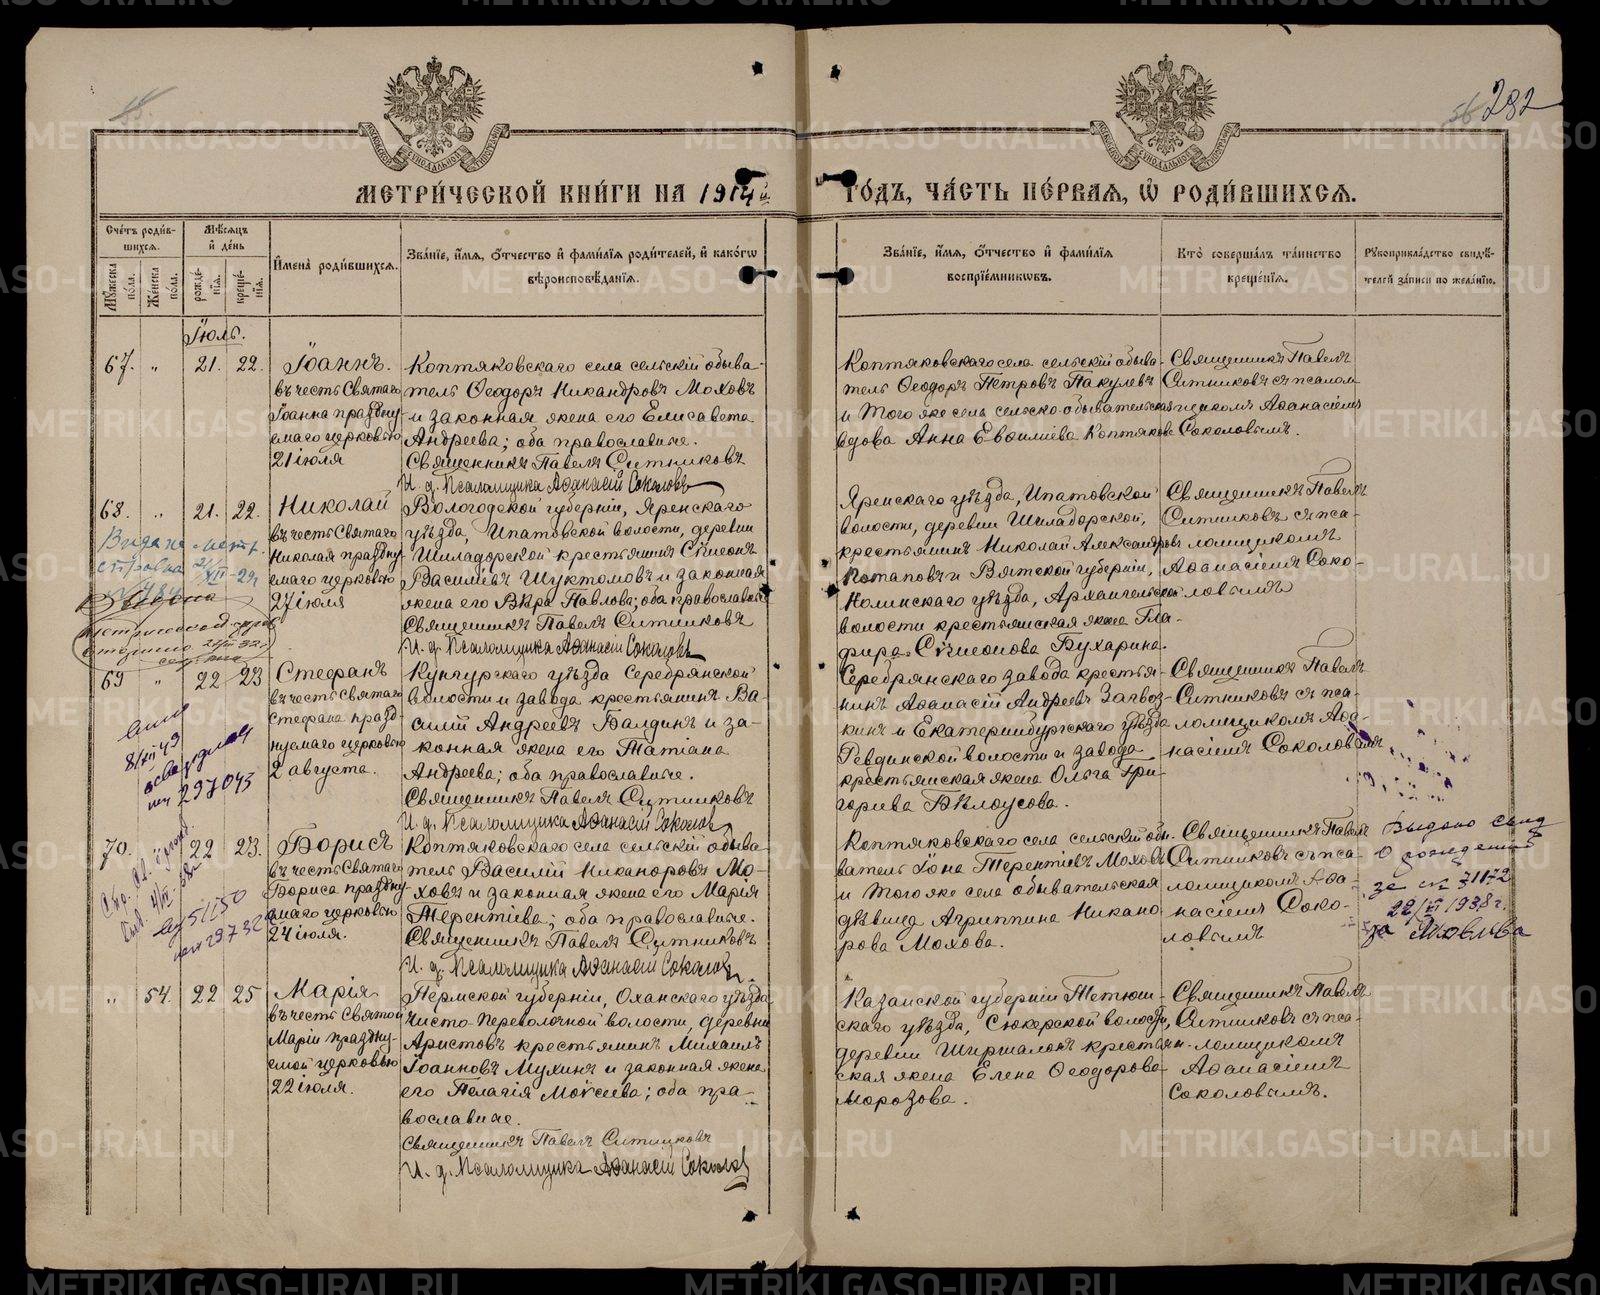 282
МЕТРИЧЕСКОЙ КНИГИ НА 1914й ГОДЪ, ЧАСТЬ ПЕРВАЯ, Ѡ РОДИВШИХСЯ.
Счетъ родив-
шихся.
Мѣсяцъ
и день
Мужеска пола.
Женска пола.
рожде-
нія.
креще-
нія.
Имена родившихся.
Званіе, имя, отчество и фамилія родителей, и какогѡ
вѣроисповѣданія.
Званіе, имя, отчество и фамилія
воспріемникѡвъ.
Кто совершалъ таинство
крещенія.
Рукоприкладство свидѣ-
телей записи по желанію.
Іюль.
67. " 21. 22.
Іоаннъ.
въ честь Святаго
Іоанна праздну-
емаго церковью
21 іюля
Коптяковскаго села сельскій обыва-
тель Ѳеодоръ Никандровъ Моховъ
и законная жена его Елисавета
Андреева; оба православные.
Священникъ Павелъ Ситниковъ
И. д. Псаломщика Аѳанасій Соколовъ
Коптяковскаго села сельскій обыва-
тель Ѳеодоръ Петровъ Пакулевъ
и того же села сельско-обывательская
вдова Анна Евсиліева Коптякова
Священникъ Павелъ
Ситниковъ съ псалом-
щикомъ Аѳанасіемъ
Соколовымъ.
68. " 21. 22.
Николай
въ честь Святаго
Николая праздну-
емаго церковью
27 іюля
Вологодской губерніи, Яренскаго
уѣзда, Ипатовской волости, деревни
Шиладорской крестьянинъ Сѵмеонъ
Васильевъ Шуктомовъ и законная
жена его Вѣра Павлова; оба православные
Священникъ Павелъ Ситниковъ
И. д. Псаломщика Аѳанасій Соколовъ
Яренскаго уѣзда, Ипатовской
волости, деревни Шиладорской,
крестьянинъ Николай Александровъ
Потаповъ и Вятской губерніи,
Нолинскаго уѣзда, Архангельской
волости крестьянская жена Гла-
фира Сѵмеонова Бухарина.
Священникъ Павелъ
Ситниковъ съ пса-
ломщикомъ
Аѳанасіемъ Соко-
ловымъ
69 " 22 23
Стефанъ
въ честь Святаго
Стефана празд-
нуемаго церковью
2 августа.
Кунгурскаго уѣзда Серебрянской
волости и завода крестьянинъ Ва-
силій Андреевъ Балдинъ и за-
конная жена его Татіана
Андреева; оба православные.
Священникъ Павелъ Ситниковъ
И. д. Псаломщика Аѳанасій Соколовъ
Серебрянскаго завода крестья-
нинъ Аѳанасій Андреевъ Загвоз-
кинъ и Екатеринбургскаго уѣзда
Ревдинской волости и завода
крестьянская жена Ольга Гри-
горьева Бѣлоусова.
Священникъ Павелъ
Ситниковъ съ пса-
ломщикомъ Аѳа-
насіемъ Соколовымъ
8/XII 43
297043
70. 22 23.
Борисъ
въ честь Святаго
Бориса праздну-
емаго церковью
24 іюля.
Коптяковскаго села сельскій обыва-
тель Василій Никаноровъ Мо-
ховъ и законная жена его Марія
Терентіева; оба православные.
Священникъ Павелъ Ситниковъ
И. д. Псаломщика Аѳанасій Соколовъ
Коптяковскаго села сельскій обы-
ватель Іона Терентіевъ Моховъ
и того же села обывательская
дѣвица Агриппина Никано-
рова Мохова.
Священникъ Павелъ
Ситниковъ съ пса-
ломщикомъ Аѳа-
насіемъ Соко-
ловымъ
Выдано свид
о рождении
за № 71172
22/VI 1938 г.
" 54. 22 25
Марія
въ честь Святой
Маріи праздну-
емой церковью
22 іюля.
Пермской губерніи, Оханскаго уѣзда
Чисто-Переволочной волости, деревни
Аристовъ крестьянинъ Михаилъ
Іоанновъ Мухинъ и законная жена
его Пелагія Моисеева; оба пра-
вославные.
Священникъ Павелъ Ситниковъ
И. д. Псаломщика Аѳанасій Соколовъ
Казанской губерніи Тетюш-
скаго уѣзда, Сюкерской волости,
деревни Ширшалокъ крестьян-
ская жена Елена Ѳеодорова
Морозова.
Священникъ Павелъ
Ситниковъ съ пса-
ломщикомъ
Аѳанасіемъ
Соколовымъ.
METRIKI.GASO-URAL.RU